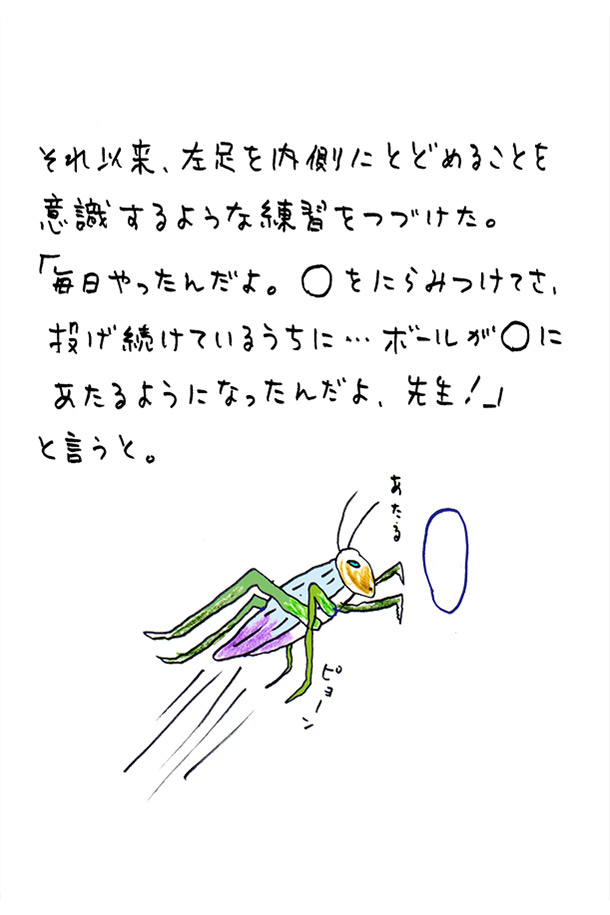 それ以来、左足を内側にとどめることを
意識するような練習をつづけた。
「毎日やったんだよ。〇をにらみつけてさ、
投げ続けているうちに…ボールが〇に
あたるようになったんだよ、先生!」
と言うと。
あたる
ピョーン